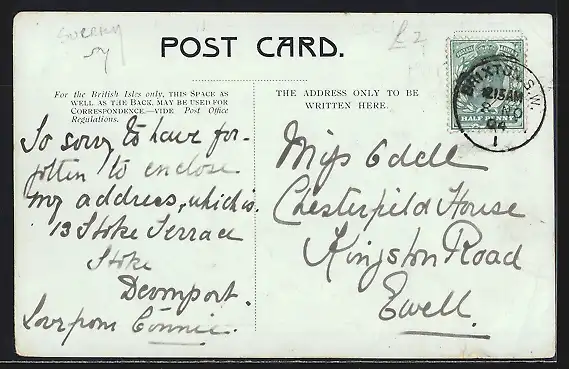 Surrey
£2
POST CARD.
For the British Isles only, THIS SPACE AS
WELL AS THE BACK, MAY BE USED FOR
CORRESPONDENCE.—VIDE Post Office
Regulations.
THE ADDRESS ONLY TO BE
WRITTEN HERE.
BRIXTON S.W.
12.15AM
1
HALF PENNY
So sorry to have for-
gotten to enclose
my address, which is.
13 Stoke Terrace
Stoke
Devonport.
Love from Connie.
Miss Odell
Chesterfield House
Kingston Road
Ewell.